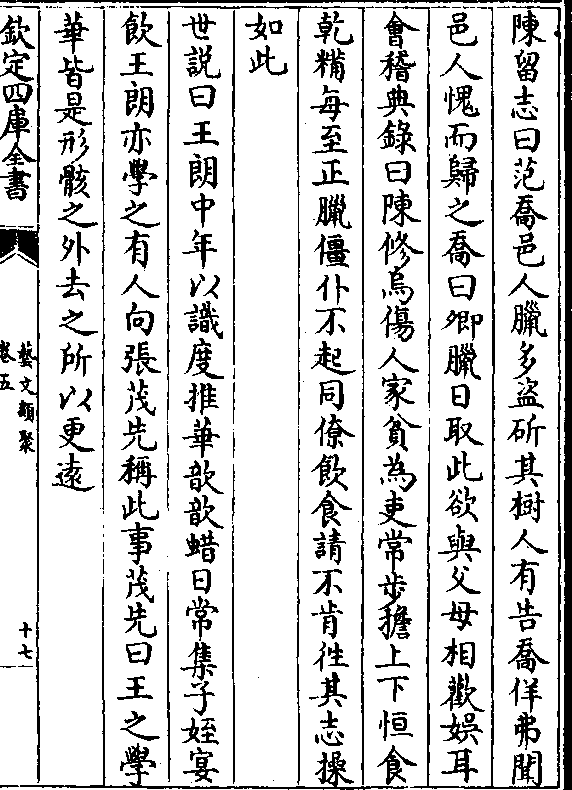 陳留志曰范喬邑人臘多盜斫其樹人有告喬佯弗聞
邑人愧而歸之喬曰卿臘日取此欲與父母相歡娯耳
會稽典錄曰陳修烏傷人家貧為吏常步擔上下恒食
乾糒每至正臘僵仆不起同僚飲食請不肯徃其志操
如此
世説曰王朗中年以識度推華歆歆蜡日常集子姪宴
飲王朗亦學之有人向張茂先稱此事茂先曰王之學
華皆是形骸之外去之所以更逺
欽定四庫全書
藝文類聚
卷五
十七